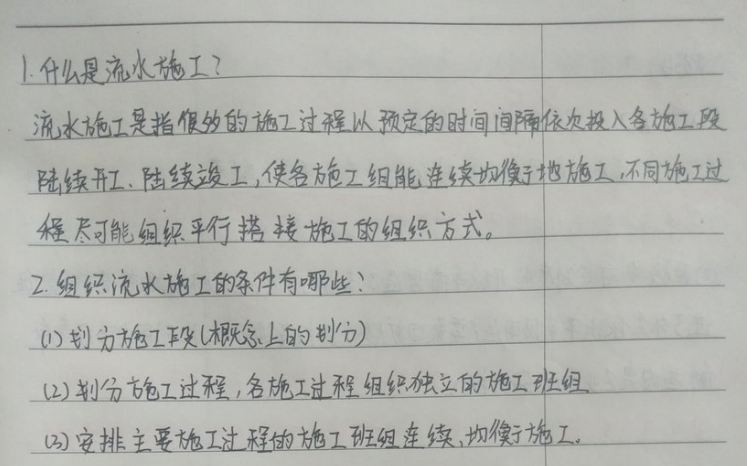 1.什么是流水施工?
流水施工是指很多的施工过程以预定的时间间隔依次投入各施工段
陆续开工、陆续竣工,使各施工组能连续均衡地施工,不同施工过
程尽可能组织平行搭接施工的组织方式。
2.组织流水施工的条件有哪些?
(1)划分施工段(概念上的划分)
(2)划分施工过程,各施工过程组织独立的施工班组
(3)安排主要施工过程的施工班组连续、均衡施工。